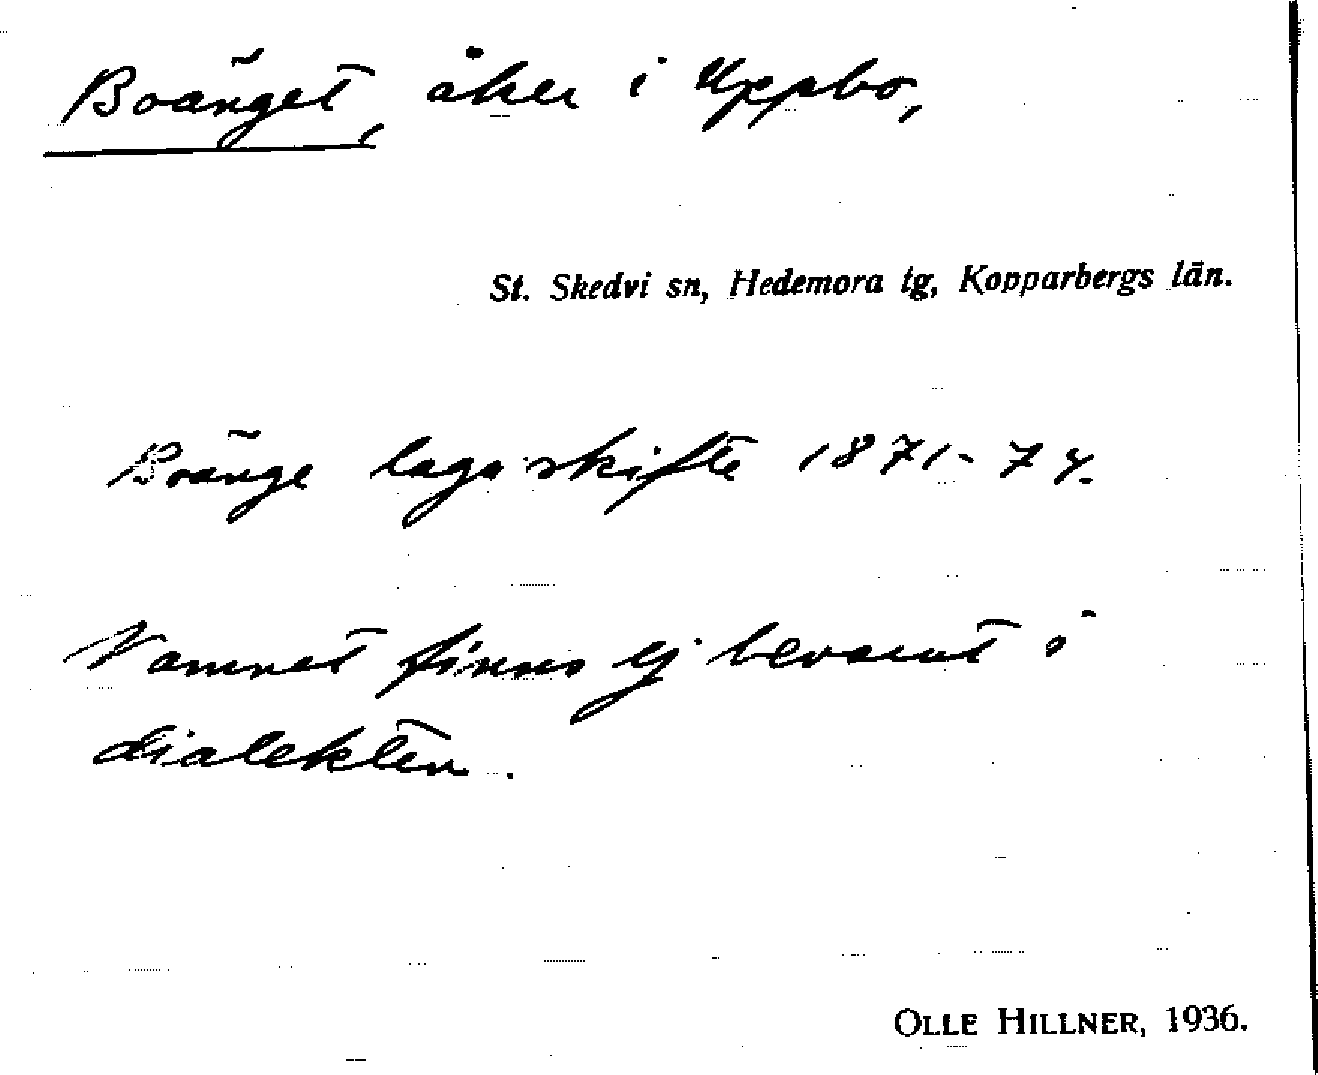 Boänget, åker i Uppbo,
St. Skedvi sn, Hedemora tg, Kopparbergs län.
Boänge laga skifte 1871-74.
Namnet finns ej bevarat i
dialekten.
OLLE HILLNER, 1936.